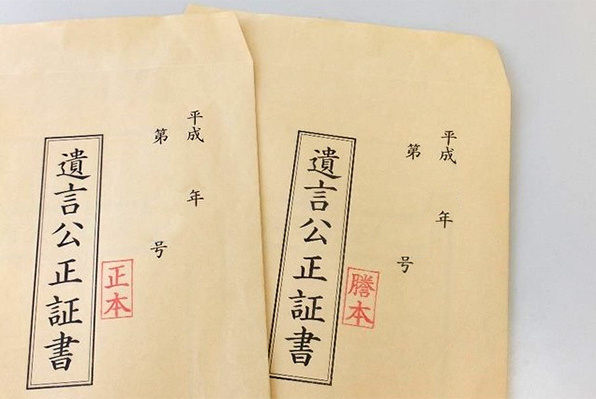 平成　年
第　号
遺言公正証書
正本
平成　年
第　号
遺言公正証書
謄本